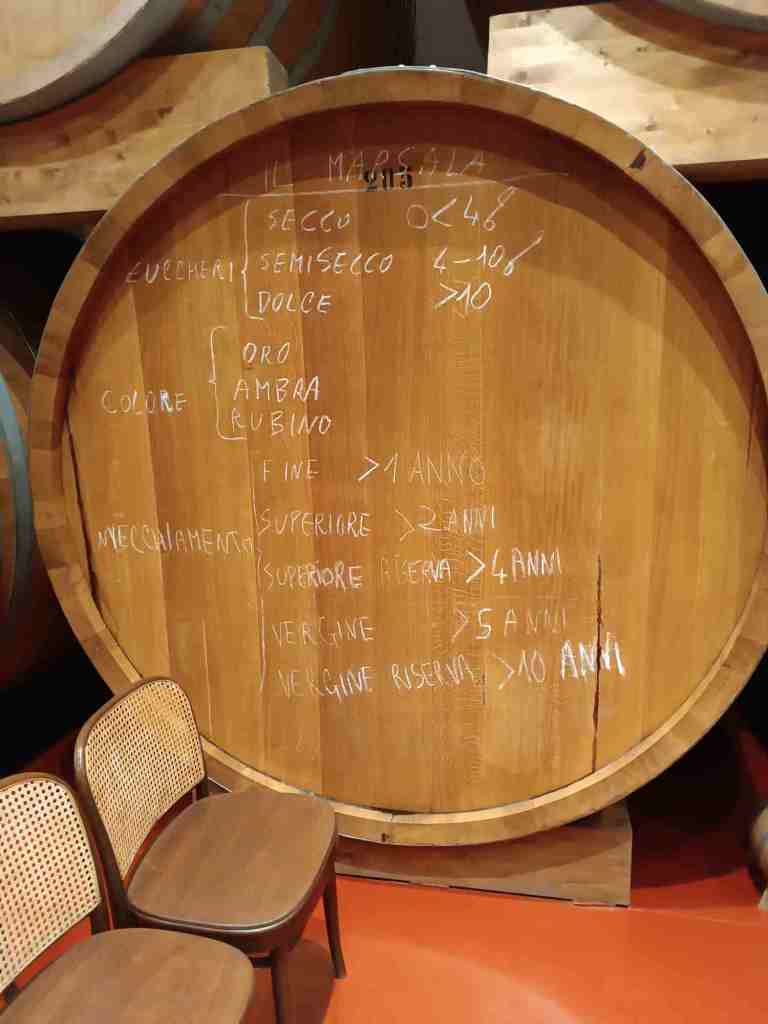 IL MARSALA
205
ZUCCHERI
SECCO 0<4%
SEMISECCO 4-10%
DOLCE >10
COLORE
ORO
AMBRA
RUBINO
INVECCHIAMENTO
FINE >1 ANNO
SUPERIORE >2 ANNI
SUPERIORE RISERVA >4 ANNI
VERGINE >5 ANNI
VERGINE RISERVA >10 ANNI